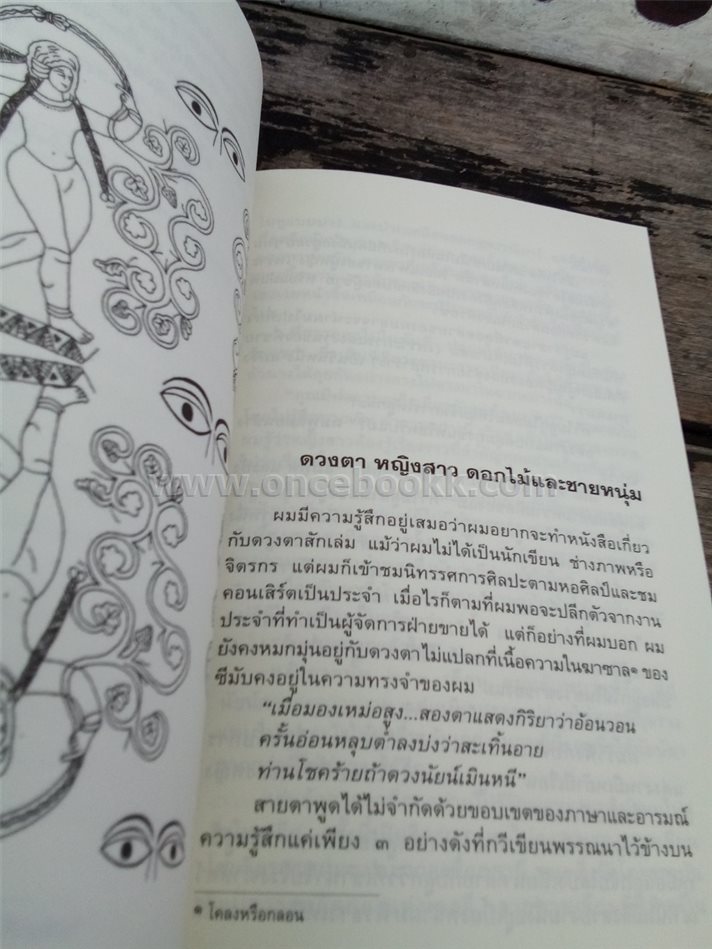 ดวงตา หญิงสาว ดอกไม้และชายหนุ่ม
ผมมีความรู้สึกอยู่เสมอว่าผมอยากจะทำหนังสือเกี่ยว
กับดวงตาสักเล่ม แม้ว่าผมไม่ได้เป็นนักเขียน ช่างภาพหรือ
จิตรกร แต่ผมก็เข้าชมนิทรรศการศิลปะตามหอศิลป์และชม
คอนเสิร์ตเป็นประจำ เมื่อไรก็ตามที่ผมพอจะปลีกตัวจากงาน
ประจำที่ทำเป็นผู้จัดการฝ่ายขายได้ แต่ก็อย่างที่ผมบอก ผม
ยังคงหมกมุ่นอยู่กับดวงตาไม่แปลกที่เนื้อความในฆาซาล๑ ของ
ซีมับคงอยู่ในความทรงจำของผม
“เมื่อมองเหม่อสูง...สองตาแสดงกิริยาว่าอ้อนวอน
ครั้นอ่อนหลุบต่ำลงบ่งว่าสะเทิ้นอาย
ท่านโชคร้ายถ้าดวงนัยน์เมินหนี”
สายตาพูดได้ไม่จำกัดด้วยขอบเขตของภาษาและอารมณ์
ความรู้สึกแค่เพียง ๓ อย่างดังที่กวีเขียนพรรณนาไว้ข้างบน
๑ โคลงหรือกลอน
www.oncebookk.com